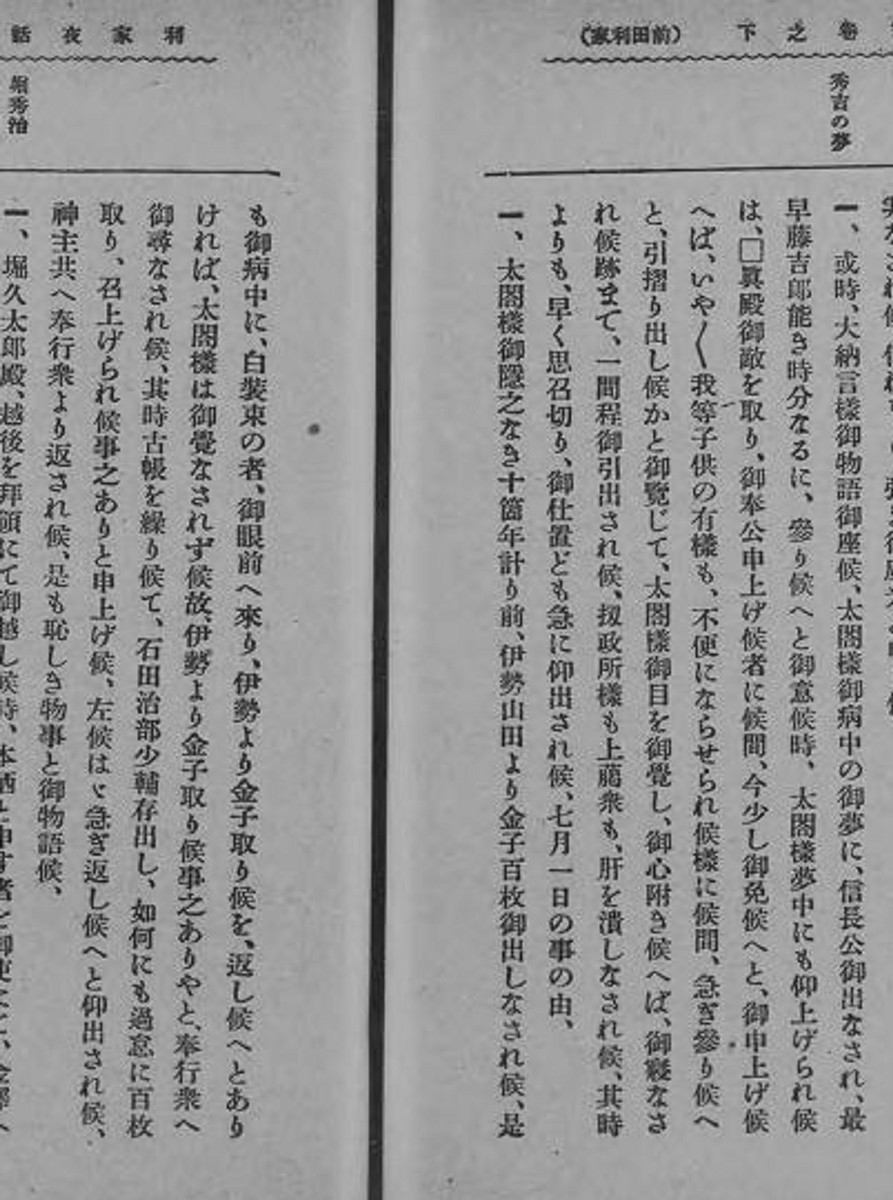 卷之下
(前田利家)
秀吉の夢
一、或時、大納言樣御物語御座候、太閤樣御病中の御夢に、信長公御出なされ、最
早藤吉郎能き時分なるに、參り候へと御意候時、太閤樣夢中にも仰上げられ候
は、□眞殿御敵を取り、御奉公申上げ候者に候間、今少し御免候へと、御申上げ候
へば、いや〱我等子供の有樣も、不便にならせられ候樣に候間、急ぎ參り候へ
と、引摺り出し候かと御覽じて、太閤樣御目を御覺し、御心附き候へば、御寢なさ
れ候跡まて、一間程御引出され候、扨政所樣も上﨟衆も、肝を潰しなされ候、其時
よりも、早く思召切り、御仕置ども急に仰出され候、七月一日の事の由、
一、太閤樣御隱之なき十箇年計り前、伊勢山田より金子百枚御出しなされ候、是
利家夜話
堀秀治
も御病中に、白裝束の者、御眼前へ來り、伊勢より金子取り候を、返し候へとあり
ければ、太閤樣は御覺なされず候故、伊勢より金子取り候事之ありやと、奉行衆へ
御尋なされ候、其時古帳を繰り候て、石田治部少輔存出し、如何にも過怠に百枚
取り、召上げられ候事之ありと申上げ候、左候はゞ急ぎ返し候へと仰出され候、
神主共へ奉行衆より返され候、是も恥しき物事と御物語候、
一、堀久太郎殿、越後を拜領にて御越し候時、